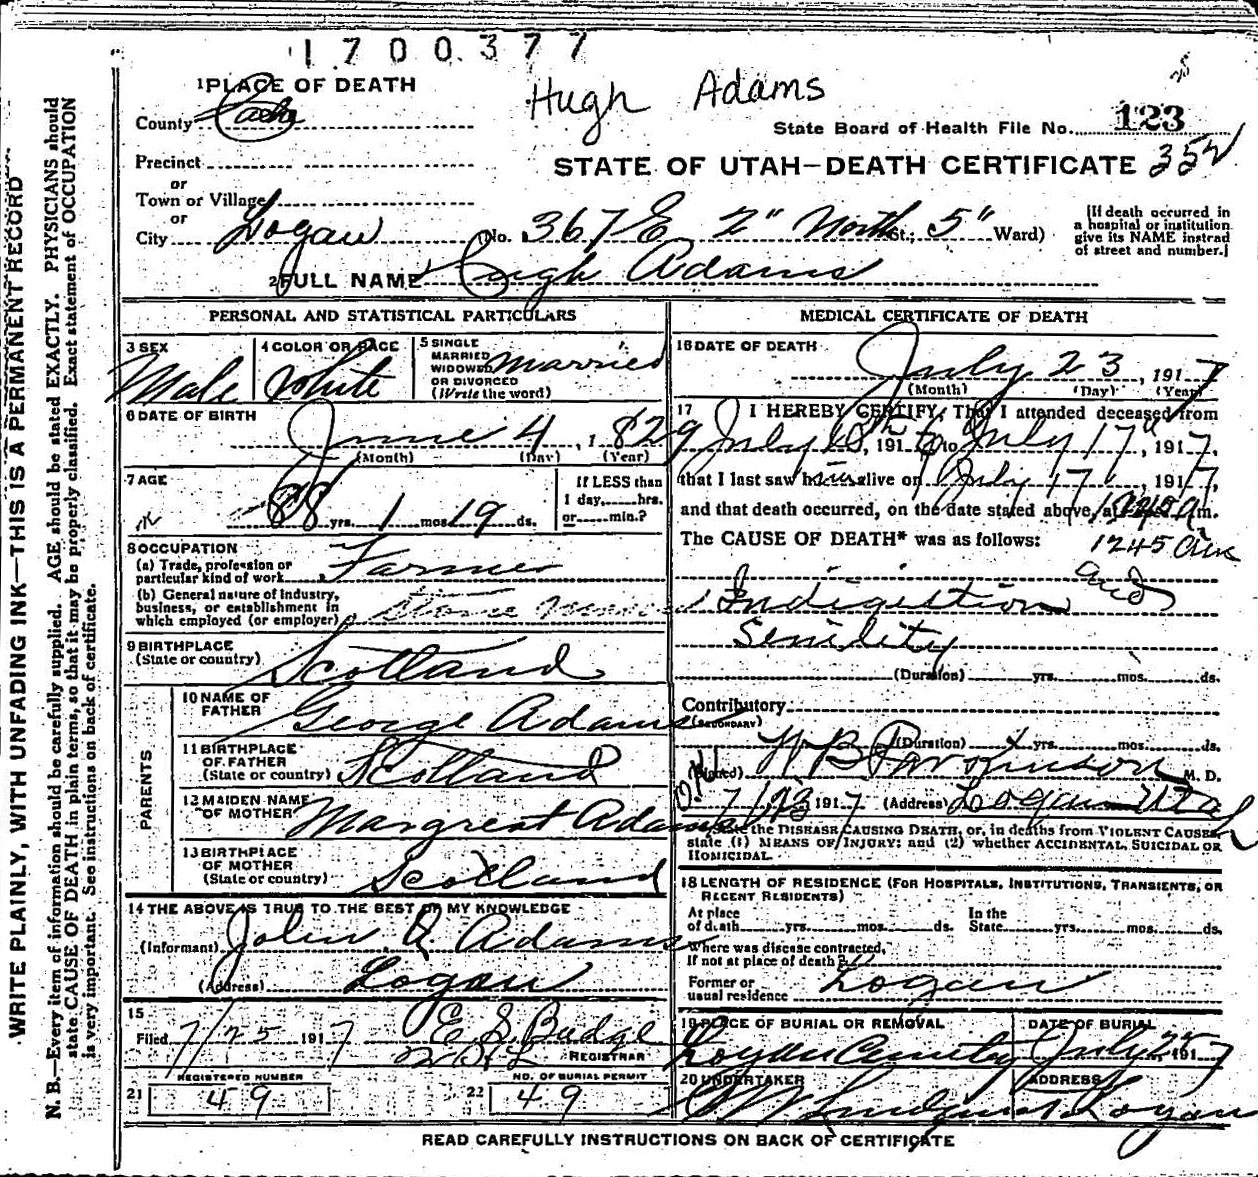 1700377
Hugh Adams
1 PLACE OF DEATH
County Cache
State Board of Health File No. 123
352
Precinct
or
Town or Village
or
City Logan
STATE OF UTAH—DEATH CERTIFICATE
(No. 367 E 2" North St.; 5" Ward)
[If death occurred in
a hospital or institution
give its NAME instead
of street and number.]
2 FULL NAME Hugh Adams
WRITE PLAINLY, WITH UNFADING INK—THIS IS A PERMANENT RECORD
N. B.—Every item of information should be carefully supplied. AGE should be stated EXACTLY. PHYSICIANS should
state CAUSE OF DEATH in plain terms, so that it may be properly classified. Exact statement of OCCUPATION
is very important. See instructions on back of certificate.
PERSONAL AND STATISTICAL PARTICULARS
3 SEX
Male
4 COLOR OR RACE
White
5 SINGLE
MARRIED
WIDOWED
OR DIVORCED
(Write the word)
married
6 DATE OF BIRTH
June 4, 1829
(Month) (Day) (Year)
7 AGE
88 yrs. 1 mos. 19 ds.
If LESS than
1 day, hrs.
or min.?
8 OCCUPATION
(a) Trade, profession or
particular kind of work
Farmer
(b) General nature of industry,
business, or establishment in
which employed (or employer)
Stone
9 BIRTHPLACE
(State or country)
Scotland
PARENTS
10 NAME OF
FATHER
George Adams
11 BIRTHPLACE
OF FATHER
(State or country)
Scotland
12 MAIDEN NAME
OF MOTHER
Margreat Adams
13 BIRTHPLACE
OF MOTHER
(State or country)
Scotland
14 THE ABOVE IS TRUE TO THE BEST OF MY KNOWLEDGE
(Informant) John Q Adams
(Address) Logan
15
Filed 7/25 1917 E S Budge
REGISTRAR
REGISTERED NUMBER
21 49
NO. OF BURIAL PERMIT
22 49
MEDICAL CERTIFICATE OF DEATH
16 DATE OF DEATH
July 23, 1917
(Month) (Day) (Year)
17 I HEREBY CERTIFY, That I attended deceased from
July, 191 to July 17th, 1917,
that I last saw him alive on July 17, 1917,
and that death occurred, on the date stated above, at 1245 a m.
The CAUSE OF DEATH* was as follows:
1245 am
Indigestion and
Senility
(Duration) yrs. mos. ds.
Contributory
(SECONDARY)
(Duration) yrs. mos. ds.
(Signed) W B Parkinson M. D.
7/23 1917 (Address) Logan Utah
*State the DISEASE CAUSING DEATH, or, in deaths from VIOLENT CAUSES,
state (1) MEANS OF INJURY; and (2) whether ACCIDENTAL, SUICIDAL OR
HOMICIDAL.
18 LENGTH OF RESIDENCE (FOR HOSPITALS, INSTITUTIONS, TRANSIENTS, OR
RECENT RESIDENTS)
At place
of death yrs. mos. ds.
In the
State yrs. mos. ds.
Where was disease contracted,
If not at place of death?
Former or
usual residence Logan
19 PLACE OF BURIAL OR REMOVAL
Logan Cemetery
DATE OF BURIAL
July 25 1917
20 UNDERTAKER
ADDRESS
Logan
READ CAREFULLY INSTRUCTIONS ON BACK OF CERTIFICATE